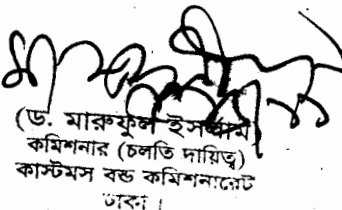 (ড. মারুফুল ইসলাম)
কমিশনার (চলতি দায়িত্ব)
কাস্টমস বন্ড কমিশনারেট
ঢাকা।